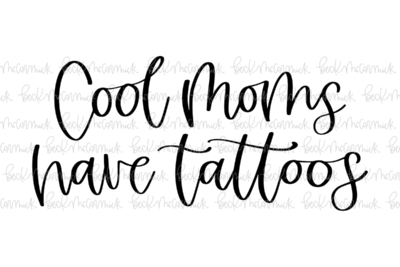 Cool moms
have tattoos